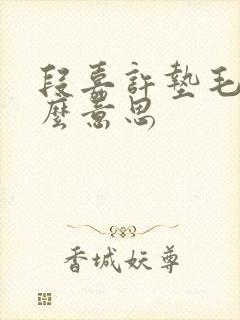 段嘉許墊毛
麼意思
香城妖尊